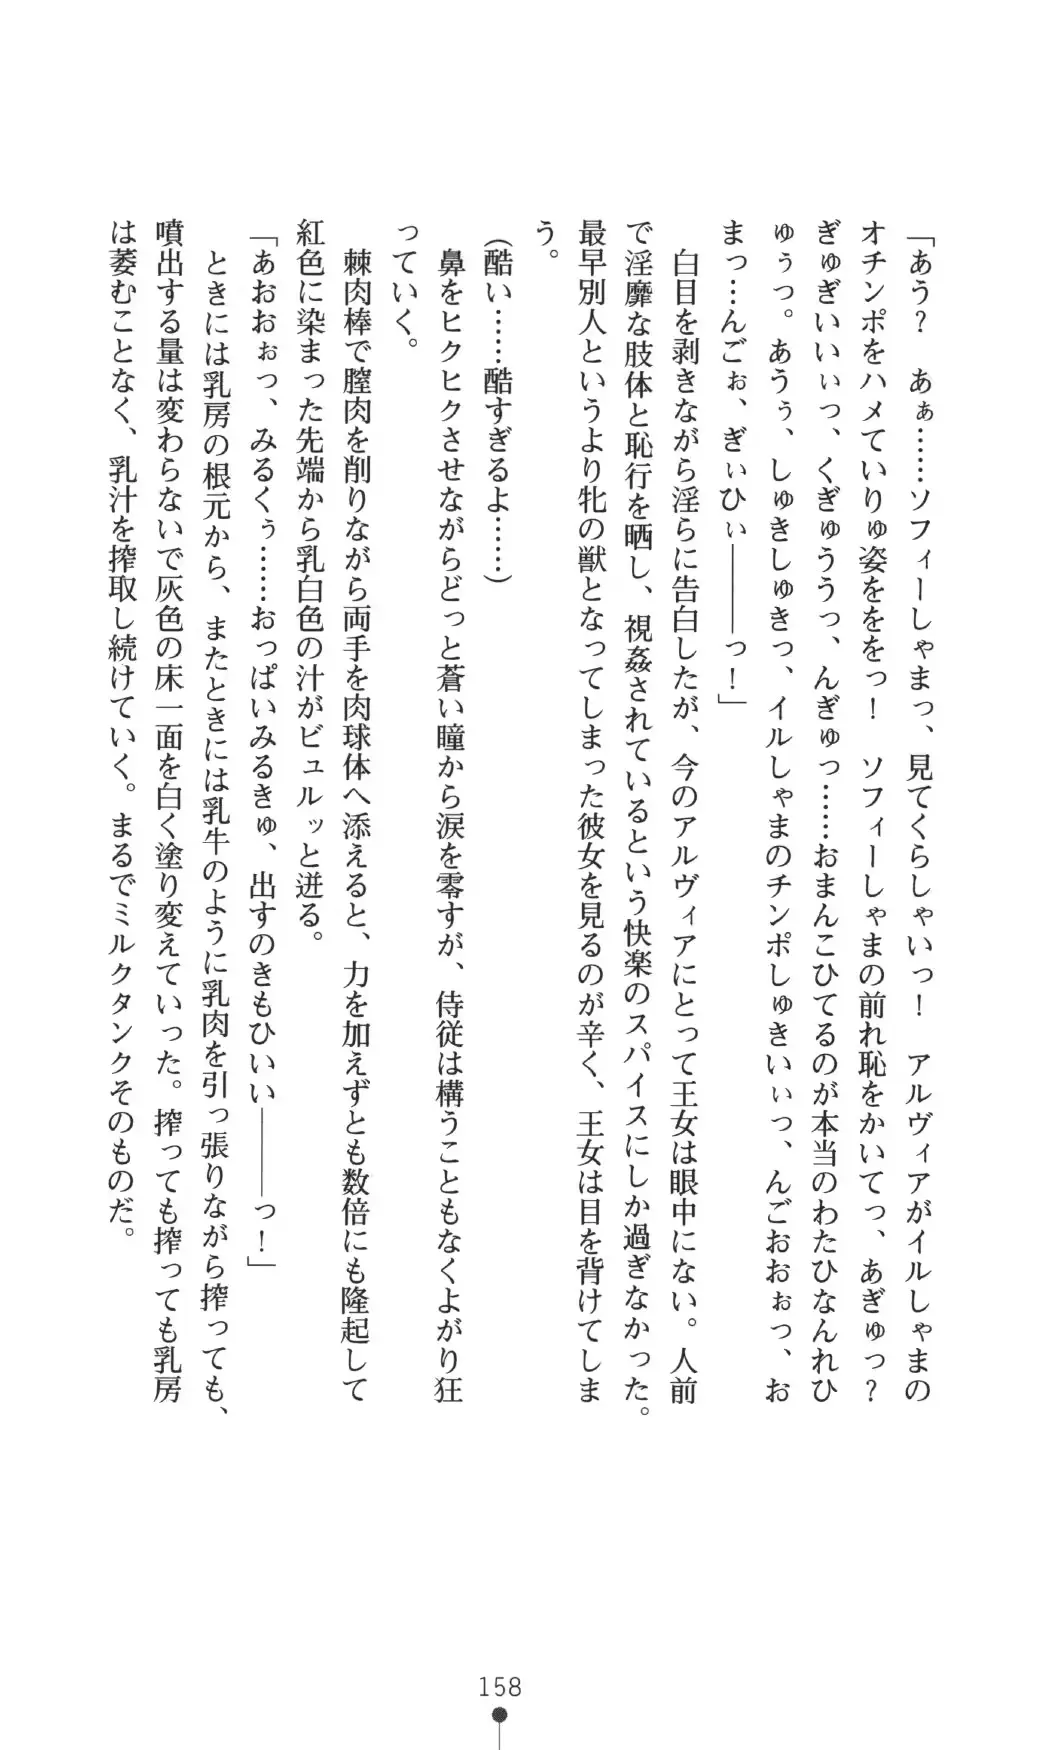 「あう？　あぁ……ソフィーしゃまっ、見てくらしゃいっ！　アルヴィアがイルしゃまの
オチンポをハメていりゅ姿ををっ！　ソフィーしゃまの前れ恥をかいてっ、あぎゅっ？
ぎゅぎいいぃっ、くぎゅううっ、んぎゅっ……おまんこひてるのが本当のわたひなんれひ
ゅぅっ。あうぅ、しゅきしゅきっ、イルしゃまのチンポしゅきいぃっ、んごおおぉっ、お
まっ…んごぉ、ぎぃひぃ―――っ！」
　白目を剥きながら淫らに告白したが、今のアルヴィアにとって王女は眼中にない。人前
で淫靡な肢体と恥行を晒し、視姦されているという快楽のスパイスにしか過ぎなかった。
最早別人というより牝の獣となってしまった彼女を見るのが辛く、王女は目を背けてしま
う。
（酷い……酷すぎるよ……）
　鼻をヒクヒクさせながらどっと蒼い瞳から涙を零すが、侍従は構うこともなくよがり狂
っていく。
　棘肉棒で膣肉を削りながら両手を肉球体へ添えると、力を加えずとも数倍にも隆起して
紅色に染まった先端から乳白色の汁がビュルッと迸る。
「あおおぉっ、みるくぅ……おっぱいみるきゅ、出すのきもひいい―――っ！」
　ときには乳房の根元から、またときには乳牛のように乳肉を引っ張りながら搾っても、
噴出する量は変わらないで灰色の床一面を白く塗り変えていった。搾っても搾っても乳房
は萎むことなく、乳汁を搾取し続けていく。まるでミルクタンクそのものだ。
158